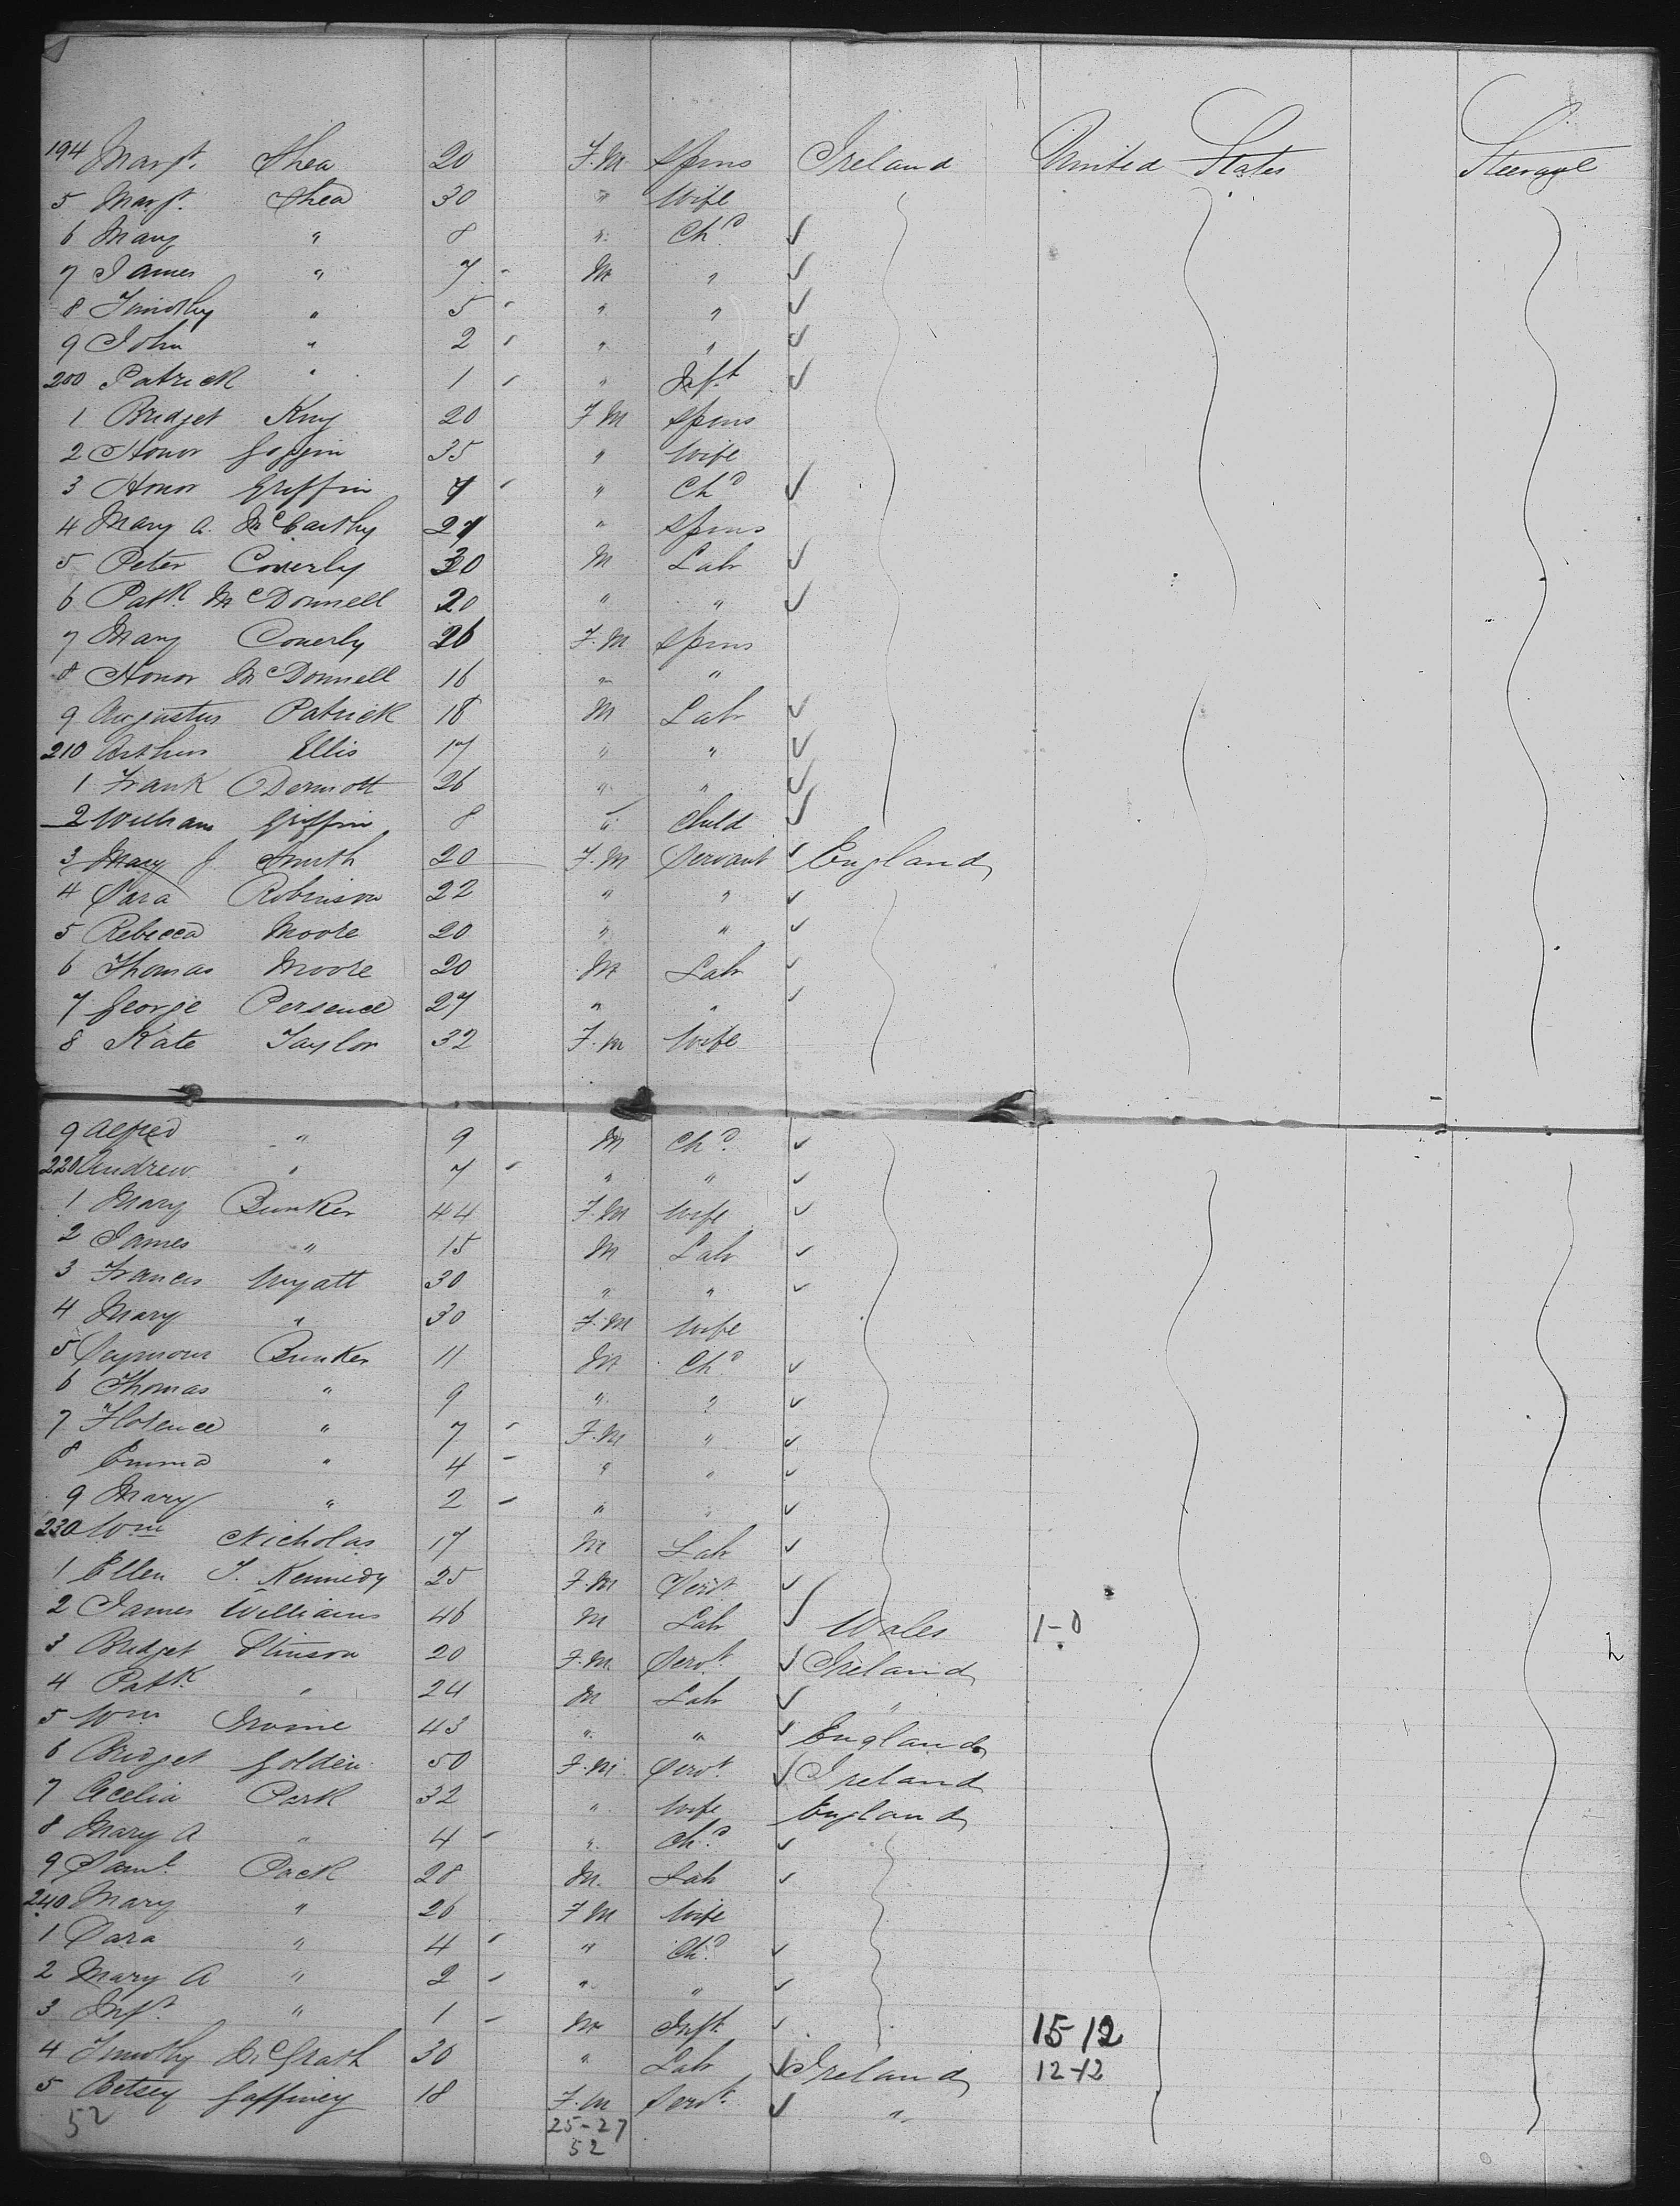 194 Margt. Shea 20 F.M Spins Ireland United States Steerage
5 Margt. Shea 30 " Wife
6 Mary " 8 " Chd ✓
7 James " 7 - M " ✓
8 Timothy " 5 - " " ✓
9 John " 2 - " " ✓
200 Patrick " 1 - " Inft ✓
1 Bridget King 20 F M Spins
2 Honor Goggin 35 " Wife
3 Honor Griffin 7 - " Chd ✓
4 Mary A. McCarthy 27 " Spins
5 Peter Conerly 30 M Labr ✓
6 Patk. McDonnell 20 " " ✓
7 Mary Conerly 26 F.M Spins
8 Honor McDonnell 16 " "
9 Augustus Patrick 18 M Labr ✓
210 Arthur Ellis 17 " " ✓
1 Frank ODermott 26 " " ✓
2 William Griffin 8 " Child ✓
3 Mary J Smith 20 F.M Servant ✓ England
4 Sara Robinson 22 " " ✓
5 Rebecca Moore 20 " " ✓
6 Thomas Moore 20 M Labr ✓
7 George Persence 27 " " ✓
8 Kate Taylor 32 F.M Wife
9 Alfred " 9 M Chd ✓
220 Andrew " 7 - " " ✓
1 Mary Bunker 44 F.M Wife ✓
2 James " 15 M Labr ✓
3 Francis Wyatt 30 " " ✓
4 Mary " 30 F.M Wife
5 Seymour Bunker 11 M Chd ✓
6 Thomas " 9 " " ✓
7 Florence " 7 - F.M " ✓
8 Emma " 4 - " " ✓
9 Mary " 2 - " " ✓
230 Wm Nicholas 17 M Lab ✓
1 Ellen T. Kennedy 25 F.M Servt ✓
2 James Williams 46 M Lab ✓ Wales 1-0
3 Bridget Stinson 20 F.M. Servt. ✓ Ireland
4 Patk. " 24 M Lab ✓ "
5 Wm Irvine 43 " " ✓ England
6 Bridget Golden 50 F.M. Servt. ✓ Ireland
7 Cecelia Park 32 " Wife England
8 Mary A " 4 - " Chd ✓
9 Saml. Pack 28 M. Lab ✓
240 Mary " 26 F M Wife
1 Sara " 4 - " Chd ✓
2 Mary A " 2 - " " ✓
3 Inft. " 1 - M Inft. ✓ 15-12
4 Timothy McGrath 30 " Lab ✓ Ireland 12-12
5 Betsey Gaffiney 18 F.M Servt. ✓ "
52 25-27
52